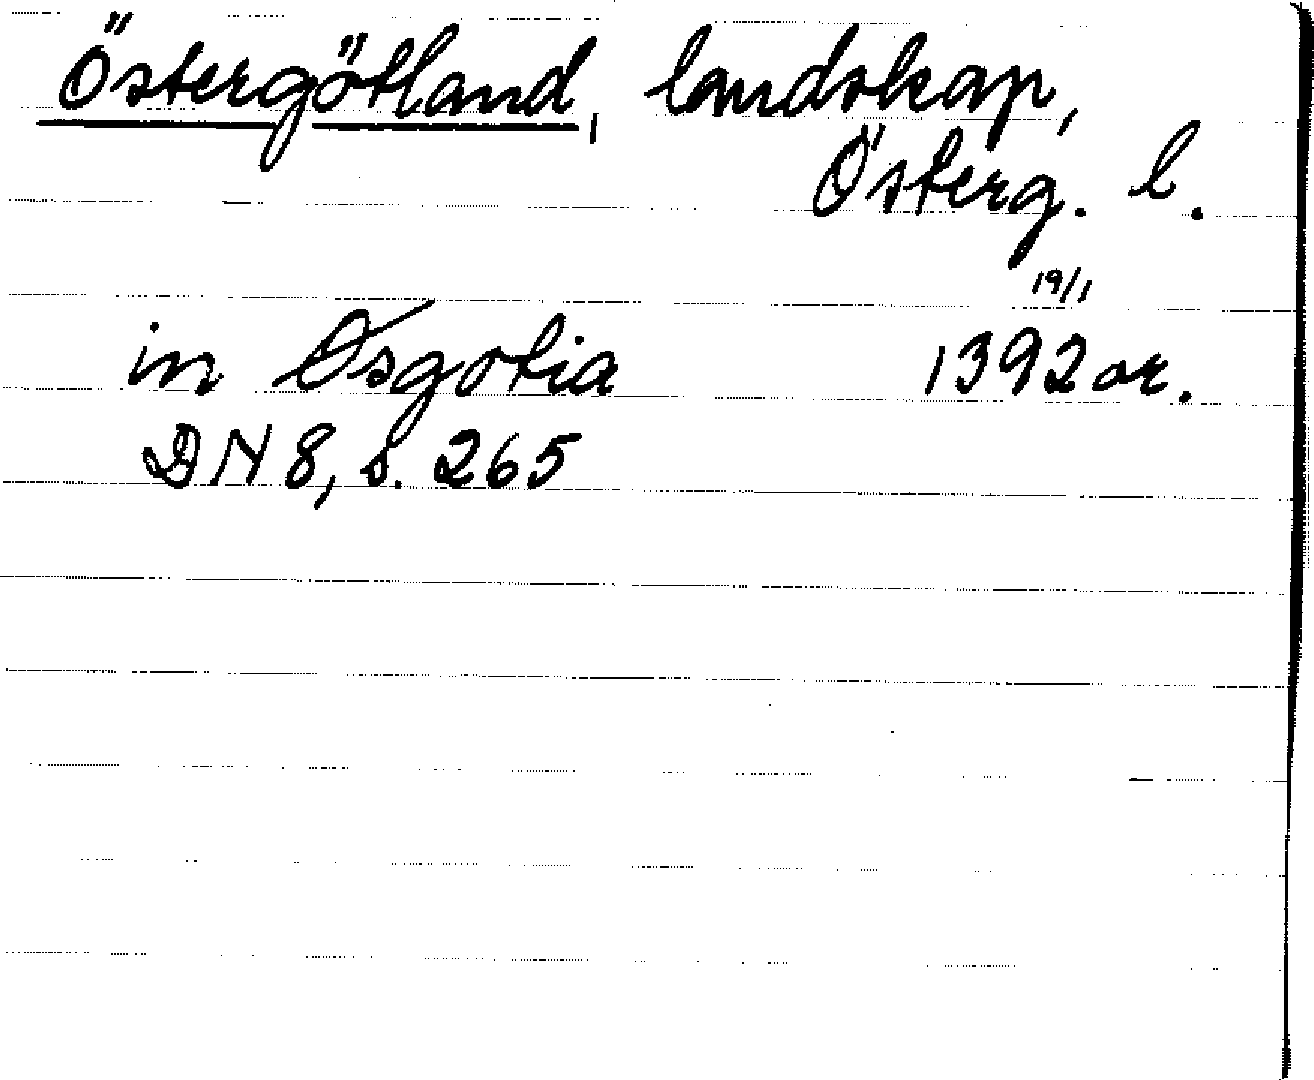 Östergötland, landskap,
Österg. l.
19/1
in Øsgotia 1392 or.
DN 8, s. 265